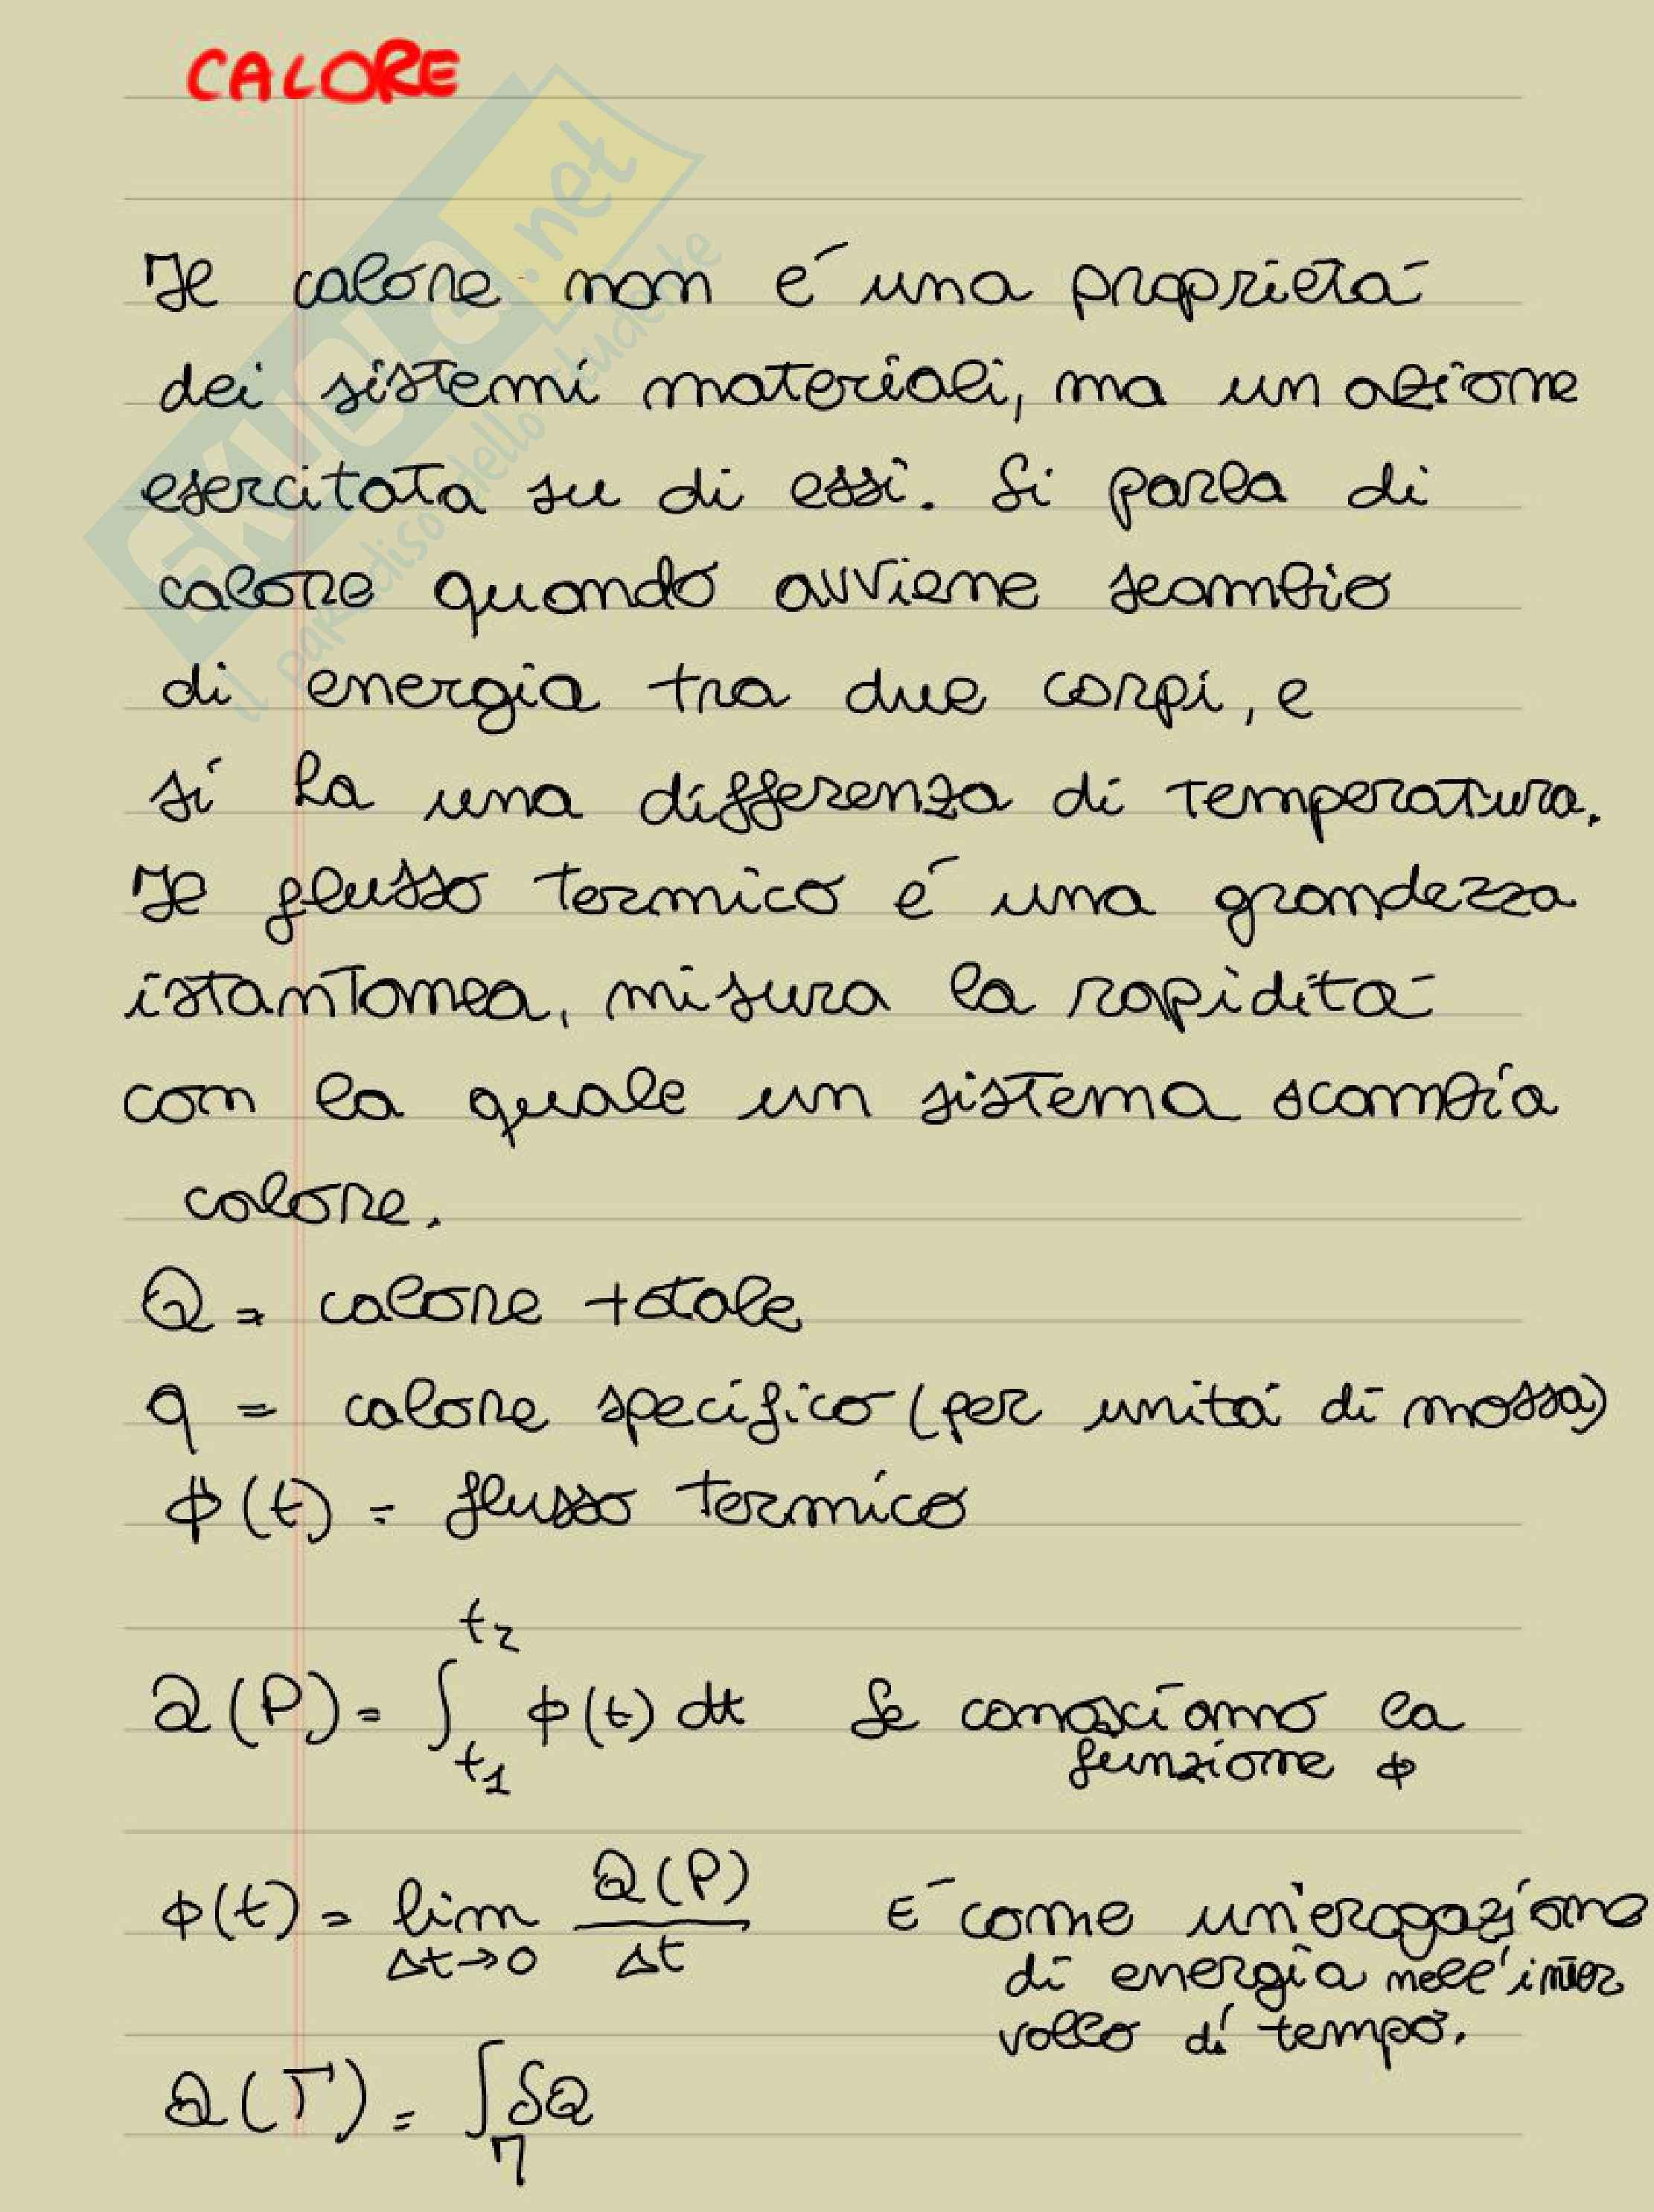 CALORE
Il calore non é una proprietá
dei sistemi materiali, ma un azione
esercitata su di essi. Si parla di
calore quando avviene scambio
di energia tra due corpi, e
si ha una differenza di temperatura.
Il flusso termico é una grandezza
istantanea, misura la rapiditá
con la quale un sistema scambia
calore.
Q = calore totale
q = calore specifico (per unitá di massa)
ϕ(t) = flusso termico
Q(P) = ∫_{t1}^{t2} ϕ(t) dt Se conosciamo la
funzione ϕ
ϕ(t) = lim_{Δt→0} Q(P)/Δt É come un'erogazione
di energia nell'inter
vallo di tempo.
Q(Γ) = ∫_Γ δQ
SKUOLA.net
il paradiso dello studente